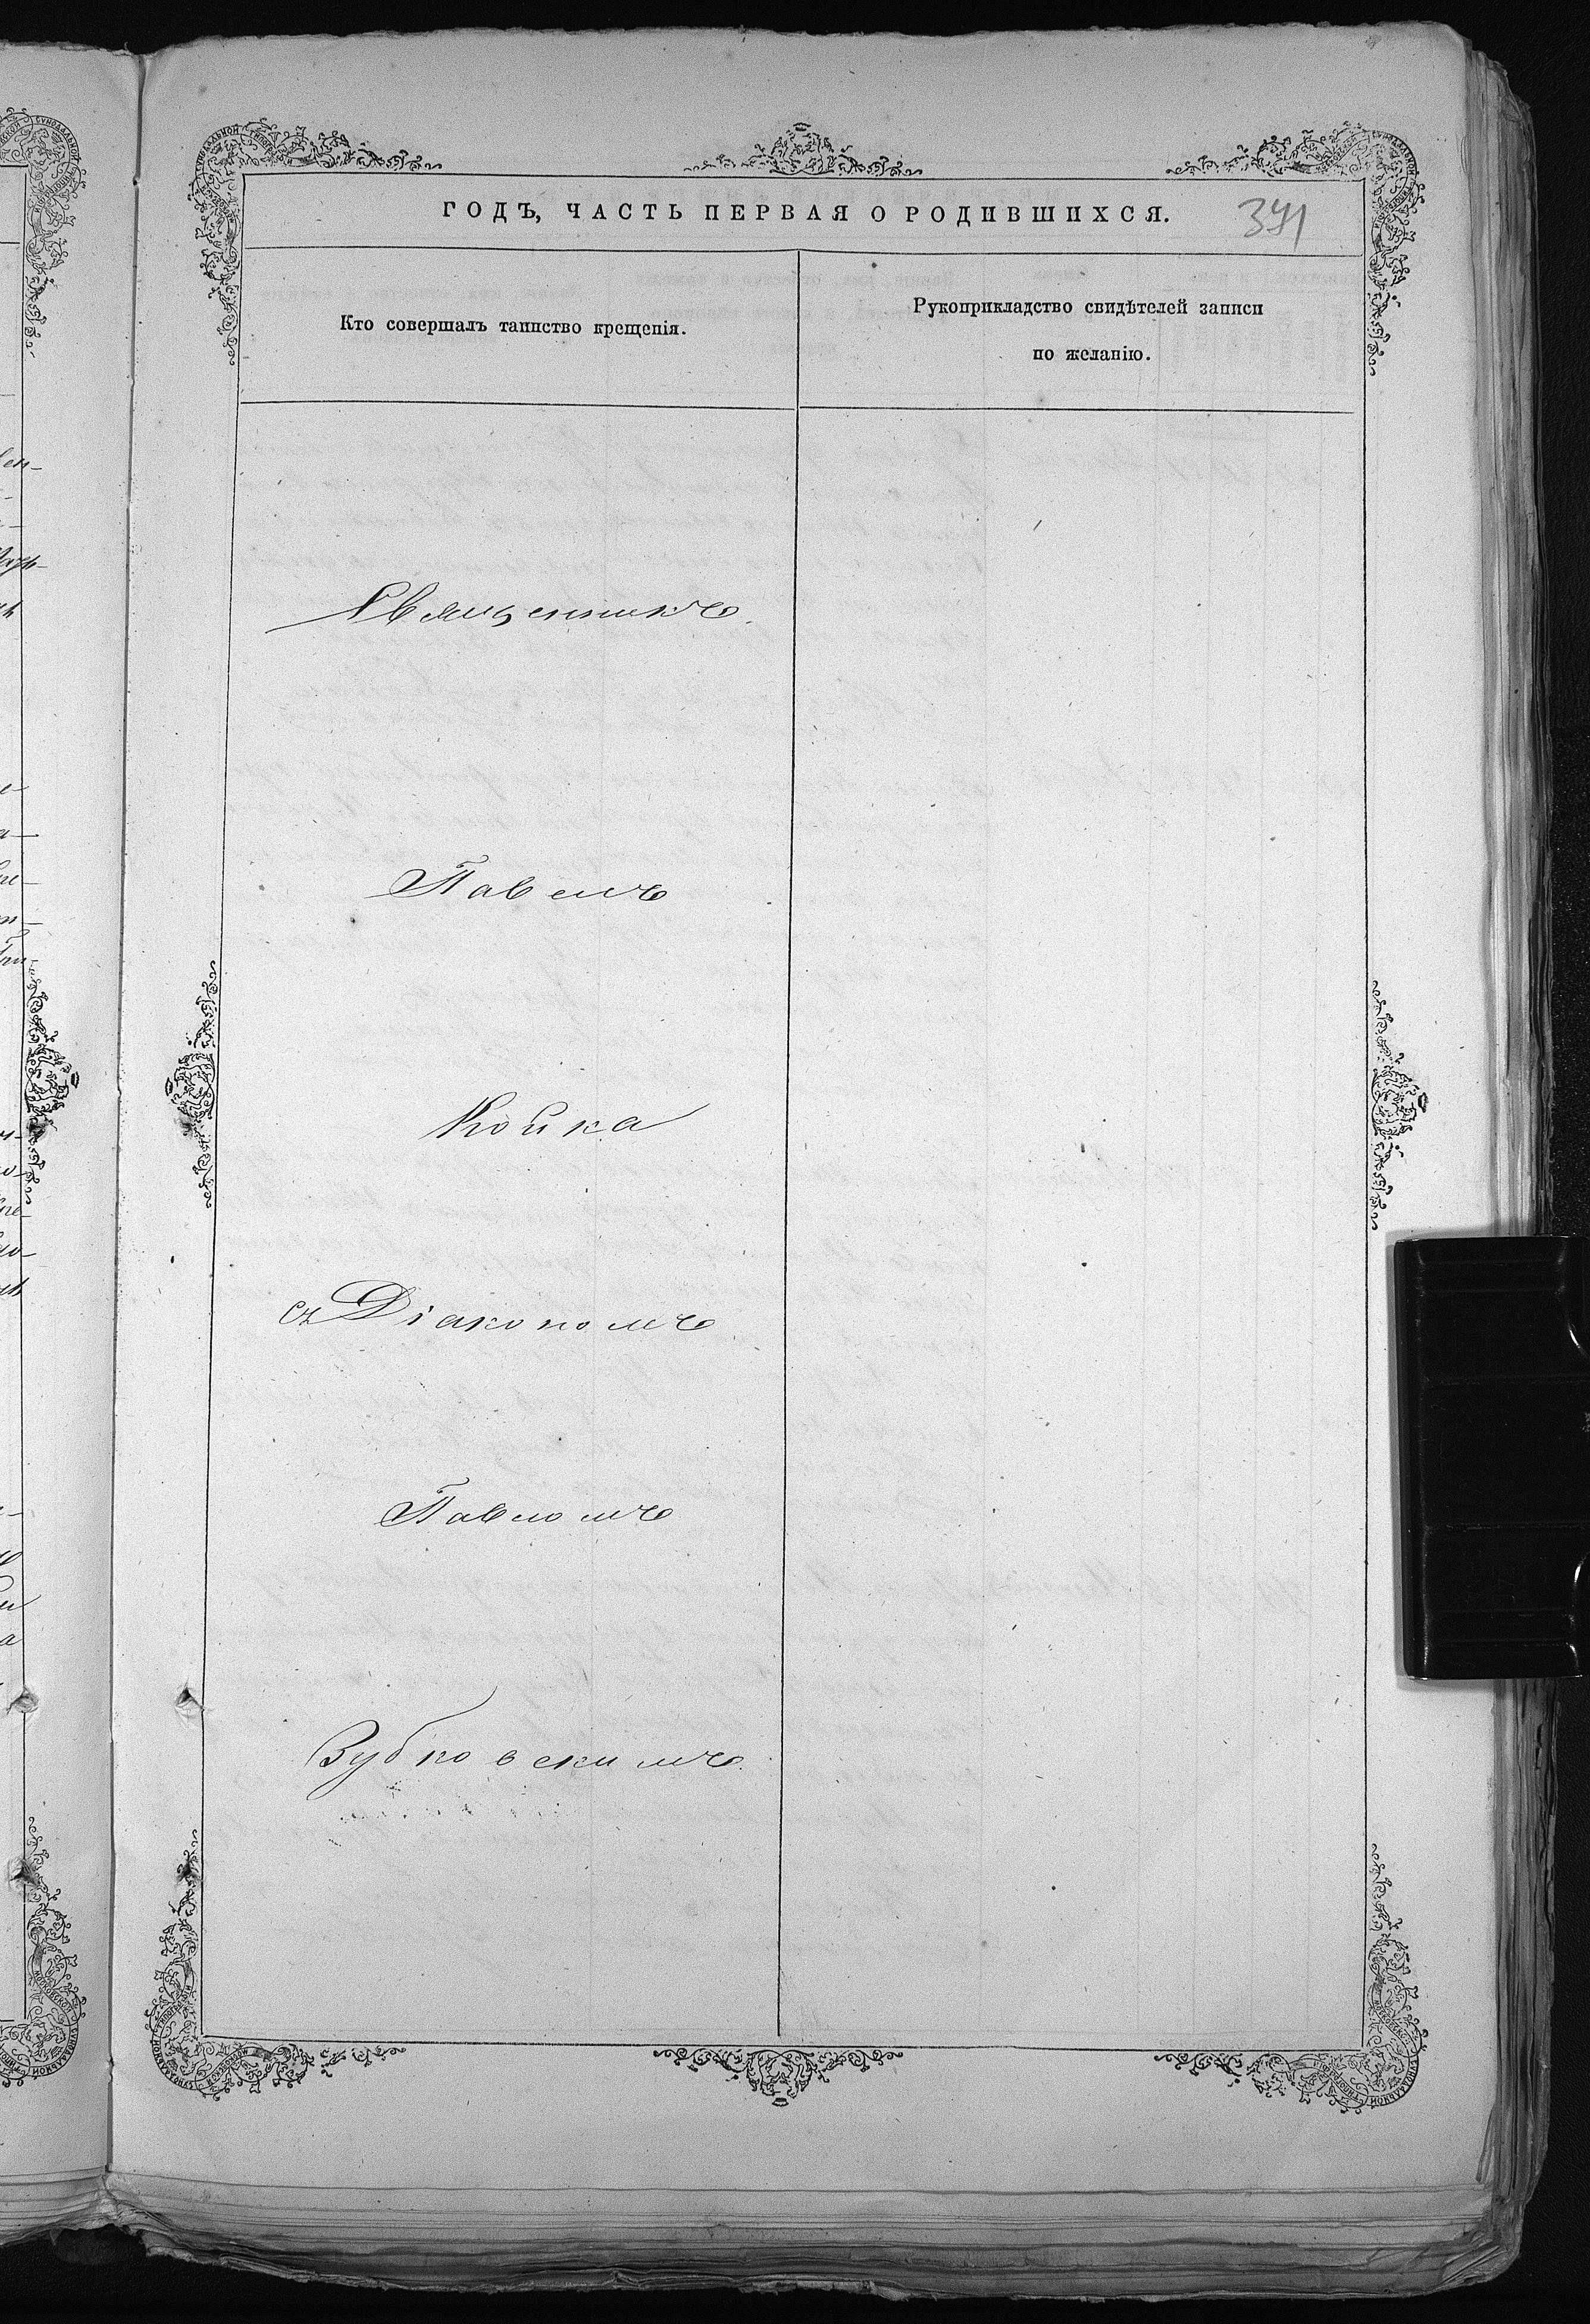 ГОДЪ, ЧАСТЬ ПЕРВАЯ О РОДИВШИХСЯ.
Кто совершалъ таинство крещенія.
Рукоприкладство свидѣтелей записи
по желанію.
Священникъ
Павелъ
Койка
съ Діакономъ
Павломъ
Зубковскимъ